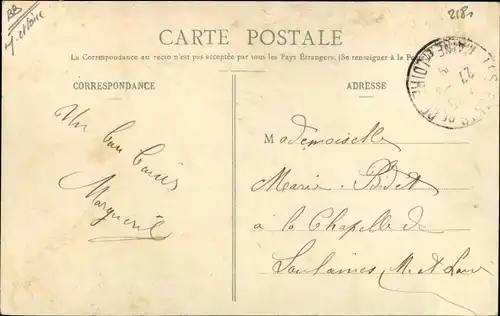 BB
2181
CARTE POSTALE
La Correspondance au recto n'est pas acceptée par tous les Pays Étrangers. (Se renseigner à la
CORRESPONDANCE
ADRESSE
Un bon baiser
Marguerite
Mademoiselle
Marie
à la Chapelle de
Soulaines M. et Loire